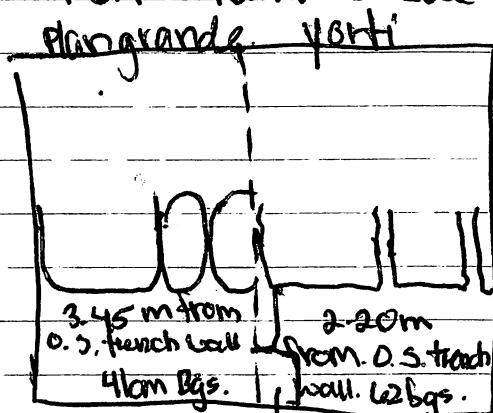 Plangrande Yorti
3.45 m from
O.S. trench wall
41cm Bgs.
2.20m
from O.S. trench
wall. 62 bgs.